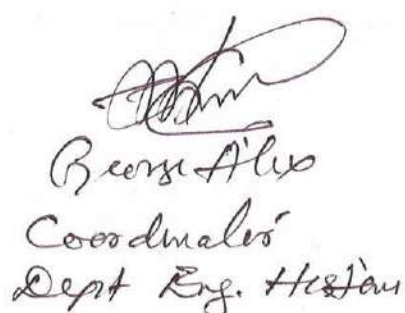 George Alex
Coordinator
Dept Eng. History